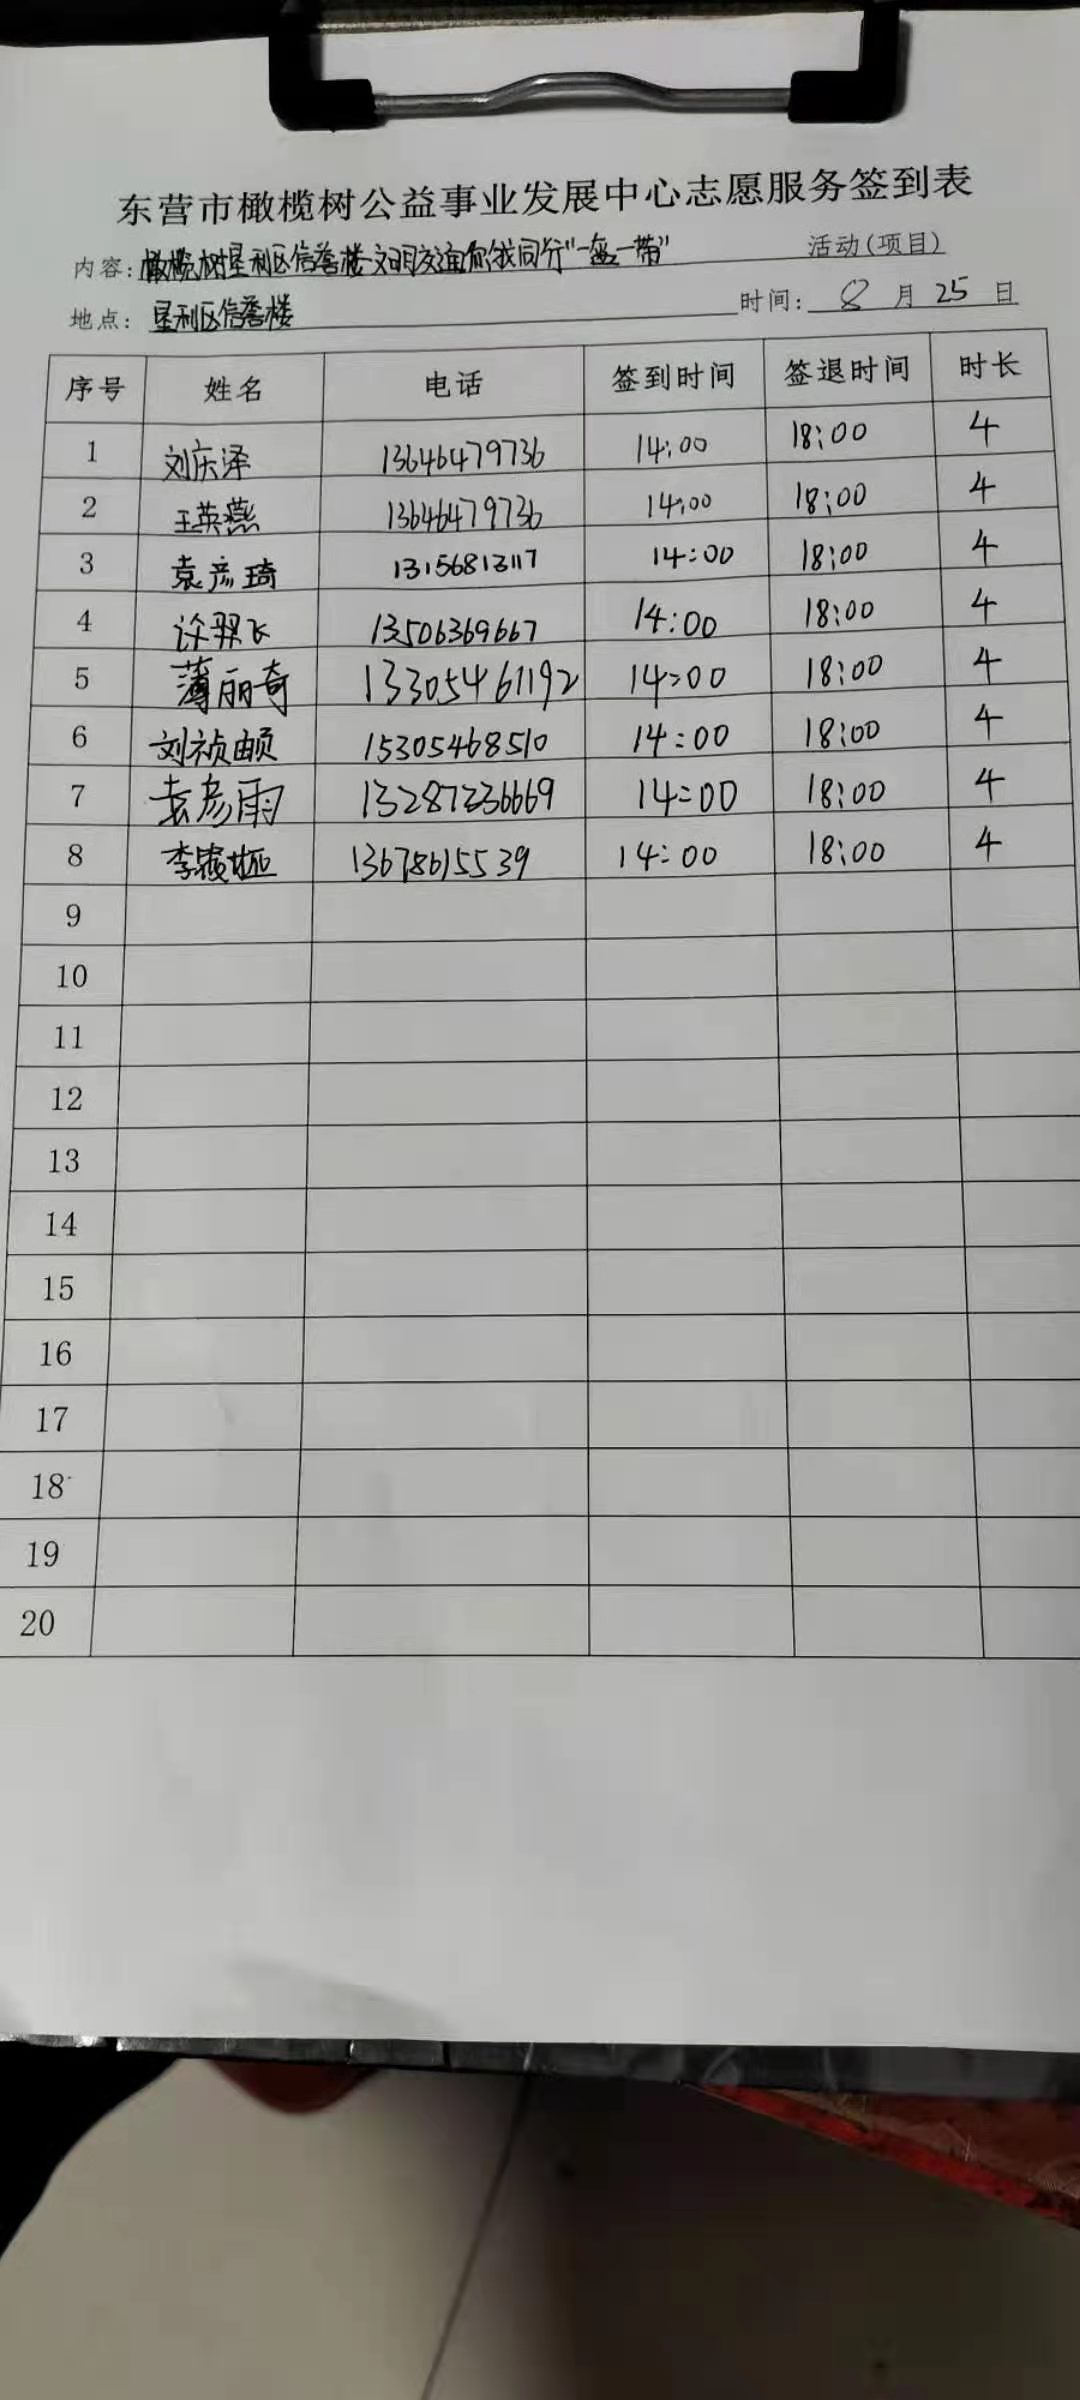 东营市橄榄树公益事业发展中心志愿服务签到表
内容：橄榄树垦利区信誉楼文明交通你我同行"一盔一带" 活动(项目)
地点：垦利区信誉楼 时间：8月25日
序号 姓名 电话 签到时间 签退时间 时长
1 刘庆泽 13646479736 14:00 18:00 4
2 王英燕 13646479736 14:00 18:00 4
3 袁彦琦 13156813117 14:00 18:00 4
4 许翠飞 13506369667 14:00 18:00 4
5 薄丽奇 13305461192 14:00 18:00 4
6 刘祯 15305468510 14:00 18:00 4
7 袁彦雨 13287236669 14:00 18:00 4
8 李 13678615539 14:00 18:00 4
9
10
11
12
13
14
15
16
17
18
19
20